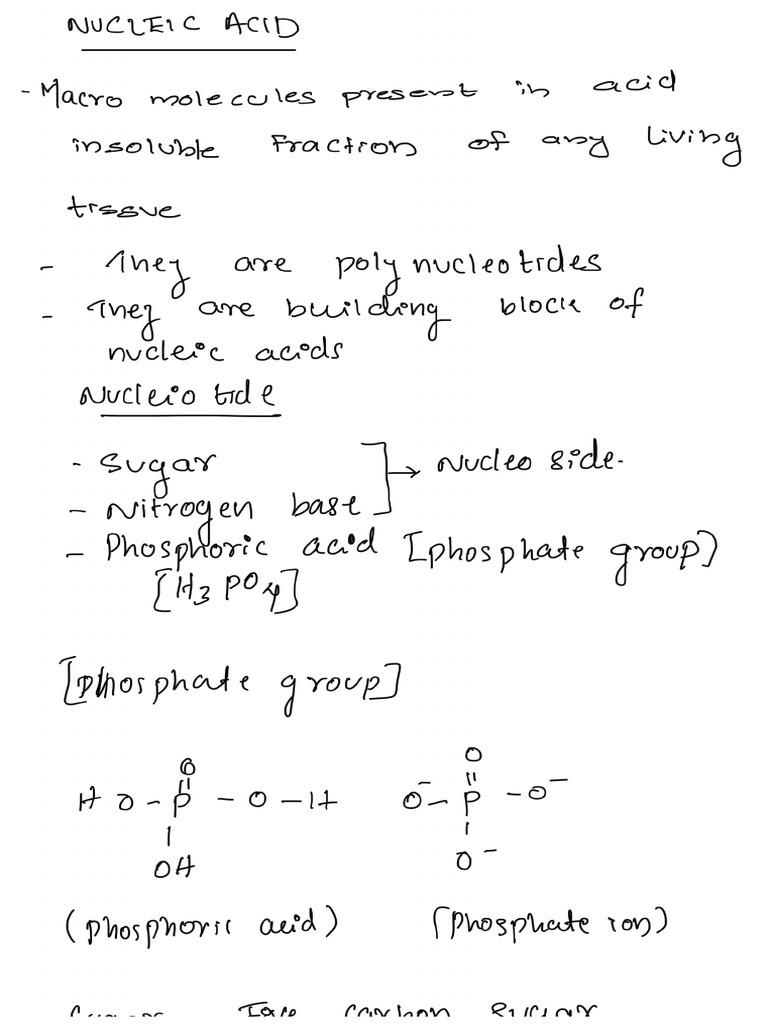 NUCLEIC ACID
- Macro molecules present in acid
insoluble fraction of any living
tissue
- They are poly nucleotides
- They are building block of
nucleic acids
Nucleotide
- Sugar
→ Nucleo side.
- Nitrogen base
- Phosphoric acid [phosphate group]
[H3PO4]
[Phosphate group]
O O
HO - P - O - H O⁻ - P - O⁻
OH O⁻
(phosphoric acid) (phosphate ion)
carbon sugar